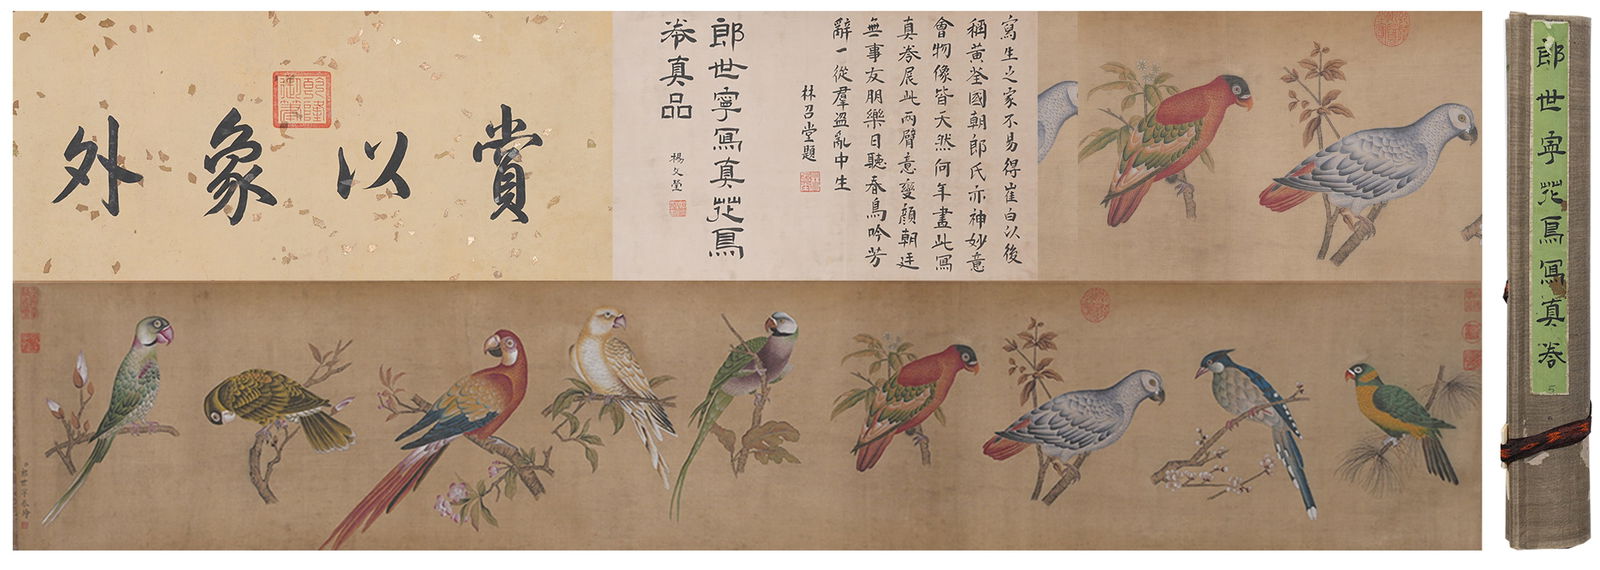 賞以象外
乾隆御筆
郎世寧寫真花鳥
卷真品
楊文瑩
寫生之家不易得崔白以後
稱黃荃國朝郎氏亦神妙意
會物像皆天然何年畫此寫
真卷展此兩臂意變顏朝廷
無事友朋樂日聽春鳥吟芳
辭一從羣盜亂中生
林召堂題
郎世寧恭繪
郎世寧花鳥寫真卷
5